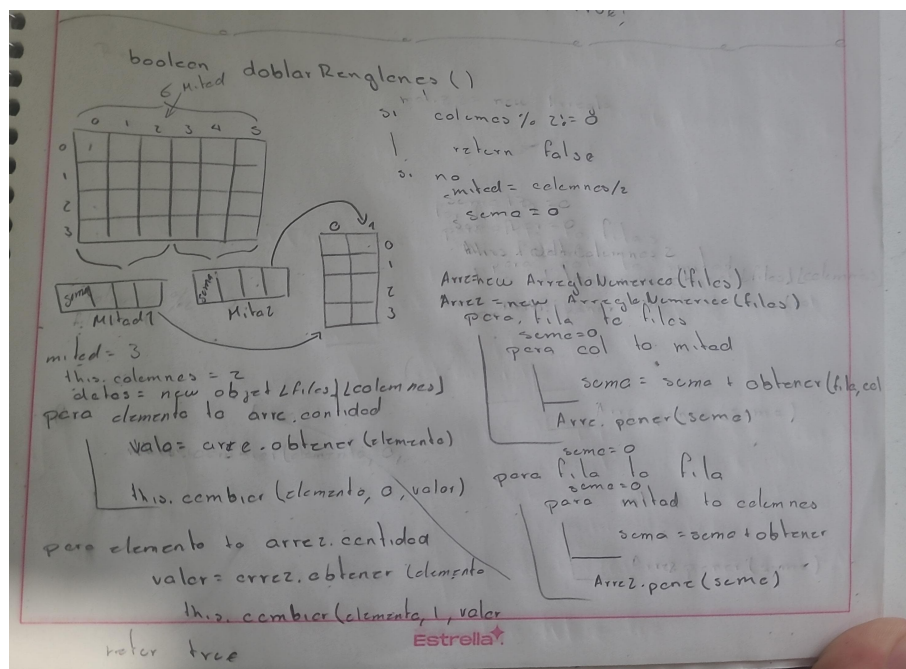 boolean doblarRenglones ()
6 Mitad
0 1 2 3 4 5
0 1
1
2
3
suma
Mitad1
suma
Mita2
0 1
0
1
2
3
mitad = 3
this. columnas = 2
datos = new objet [filas] [columnas]
para elemento to arre. cantidad
valo = arre. obtener (elemento)
this. cambiar (elemento, 0, valor)
para elemento to arre2. cantidad
valor = arre2. obtener (elemento
this. cambiar (elemento, 1, valor
retur true
si columas % 2 != 0
return false
si no
mitad = columnas/2
suma = 0
Arre=new ArregloNumerico (filas)
Arre2 = new ArregloNumerico (filas)
para fila to filas
suma=0
para col to mitad
suma = suma + obtener (fila, col
Arre. poner (suma)
suma = 0
para fila to fila
suma=0
para mitad to columnas
suma = suma + obtener
Arre2. pone (suma)
Estrella